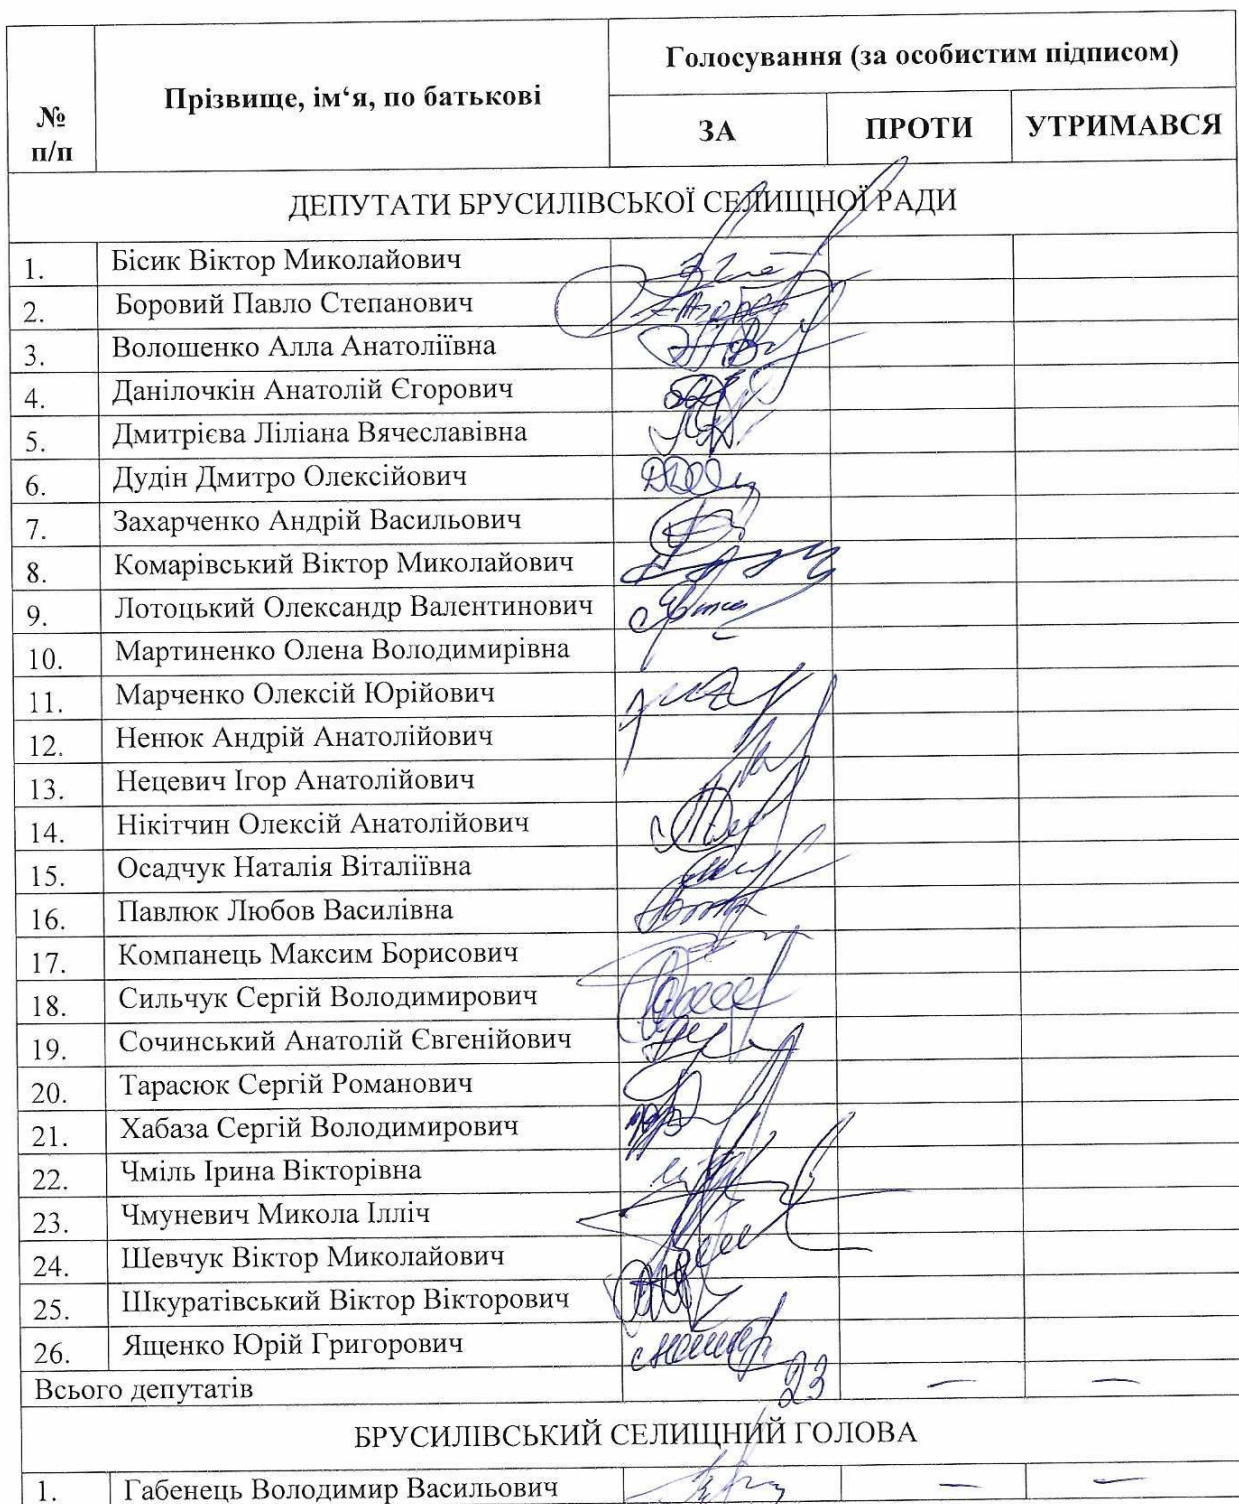 № п/п
Прізвище, ім‘я, по батькові
Голосування (за особистим підписом)
ЗА
ПРОТИ
УТРИМАВСЯ
ДЕПУТАТИ БРУСИЛІВСЬКОЇ СЕЛИЩНОЇ РАДИ
1. Бісик Віктор Миколайович
2. Боровий Павло Степанович
3. Волошенко Алла Анатоліївна
4. Данілочкін Анатолій Єгорович
5. Дмитрієва Ліліана Вячеславівна
6. Дудін Дмитро Олексійович
7. Захарченко Андрій Васильович
8. Комарівський Віктор Миколайович
9. Лотоцький Олександр Валентинович
10. Мартиненко Олена Володимирівна
11. Марченко Олексій Юрійович
12. Ненюк Андрій Анатолійович
13. Нецевич Ігор Анатолійович
14. Нікітчин Олексій Анатолійович
15. Осадчук Наталія Віталіївна
16. Павлюк Любов Василівна
17. Компанець Максим Борисович
18. Сильчук Сергій Володимирович
19. Сочинський Анатолій Євгенійович
20. Тарасюк Сергій Романович
21. Хабаза Сергій Володимирович
22. Чміль Ірина Вікторівна
23. Чмуневич Микола Ілліч
24. Шевчук Віктор Миколайович
25. Шкуратівський Віктор Вікторович
26. Ященко Юрій Григорович
Всього депутатів 23 — —
БРУСИЛІВСЬКИЙ СЕЛИЩНИЙ ГОЛОВА
1. Габенець Володимир Васильович — —